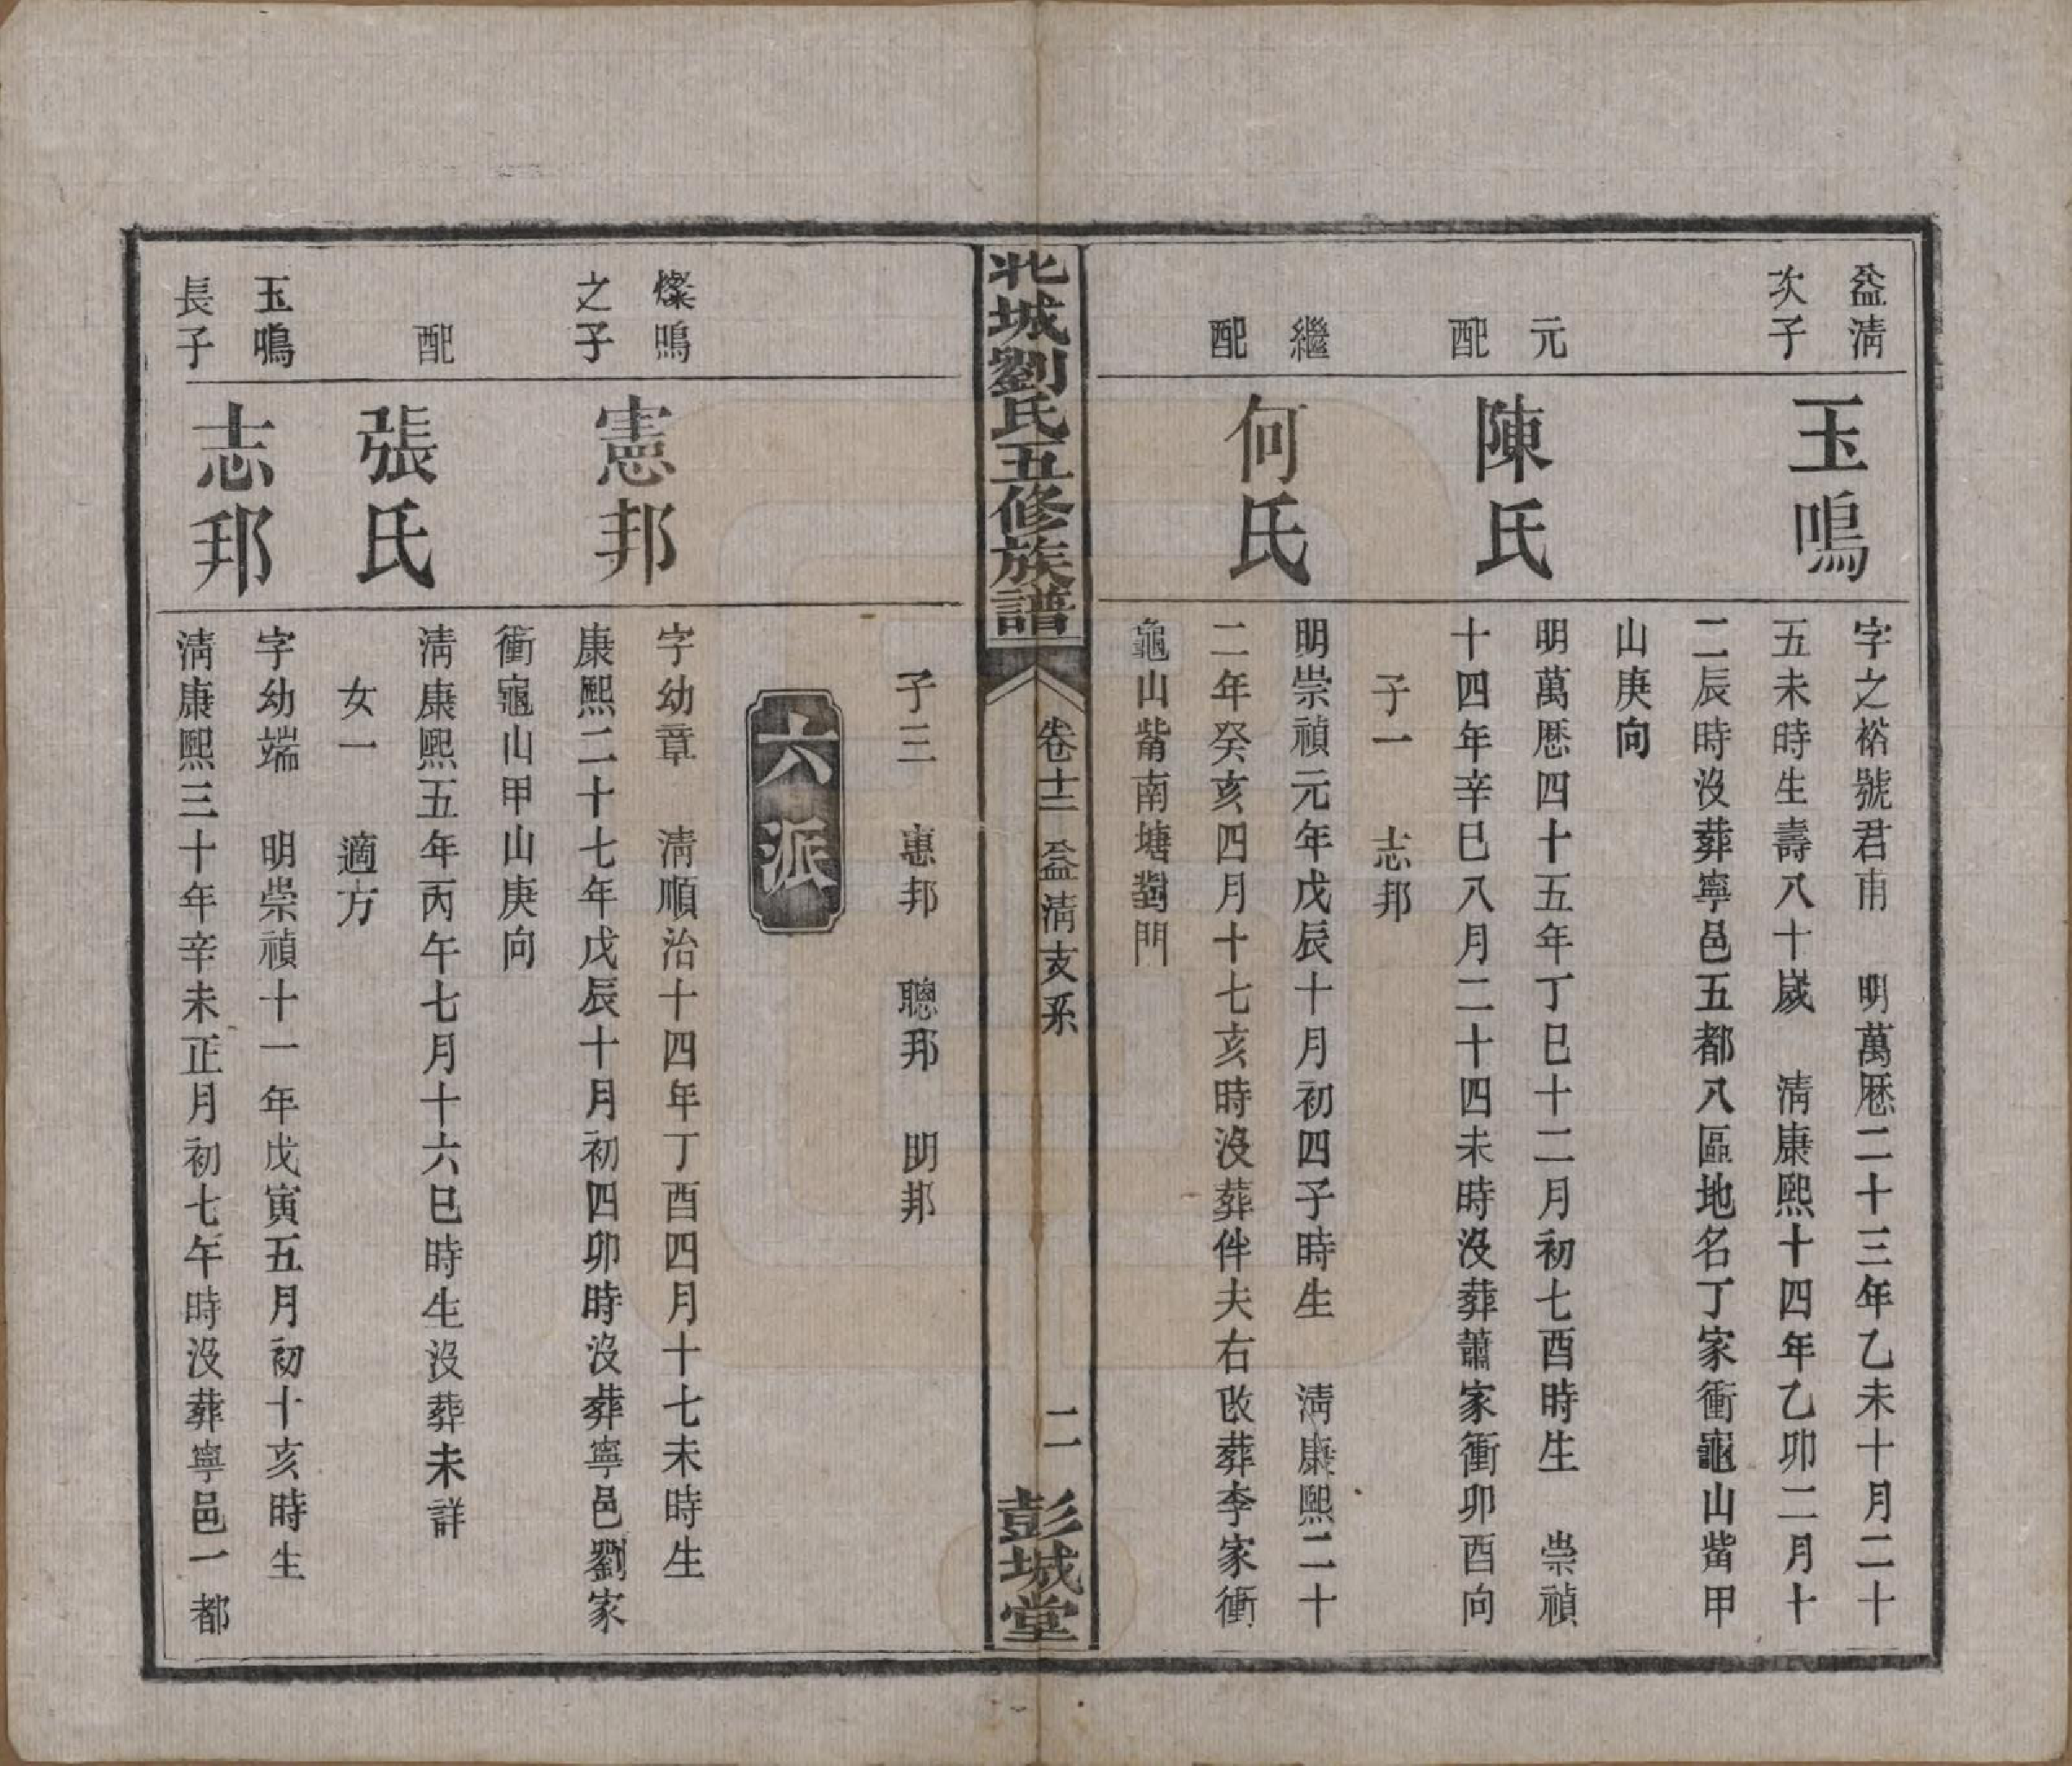 益淸
次子
玉鳴
字之裕號君甫　明萬厯二十三年乙未十月二十
五未時生壽八十歲　淸康熙十四年乙卯二月十
二辰時沒葬寧邑五都八區地名丁家衝龜山觜甲
山庚向
元
配
陳氏
明萬厯四十五年丁巳十二月初七酉時生　崇禎
十四年辛巳八月二十四未時沒葬蕭家衝卯酉向
子一　志邦
繼
配
何氏
明崇禎元年戊辰十月初四子時生　淸康熙二十
二年癸亥四月十七亥時沒葬伴夫右改葬李家衝
龜山觜南塘對門
北城劉氏五修族譜
卷十二　益淸支系
二
彭城堂
子三　惠邦　聰邦　明邦
六派
燦鳴
之子
憲邦
字幼章　淸順治十四年丁酉四月十七未時生
康熙二十七年戊辰十月初四卯時沒葬寧邑劉家
衝龜山甲山庚向
配
張氏
淸康熙五年丙午七月十六巳時生沒葬未詳
女一　適方
玉鳴
長子
志邦
字幼端　明崇禎十一年戊寅五月初十亥時生
淸康熙三十年辛未正月初七午時沒葬寧邑一都